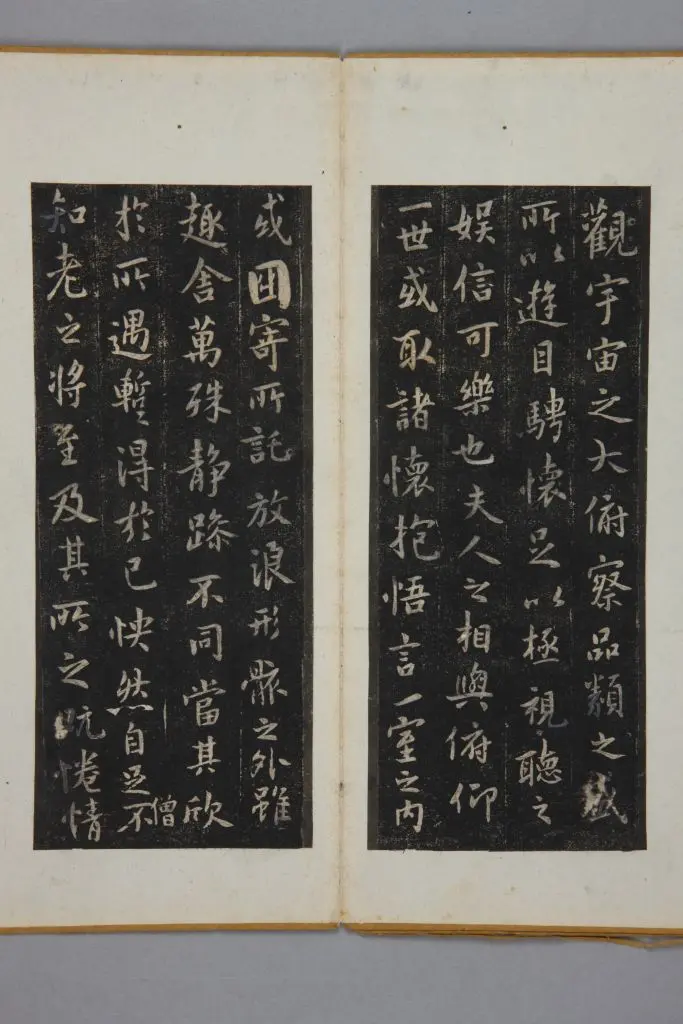 觀宇宙之大俯察品類之盛
所以遊目騁懷足以極視聽之
娛信可樂也夫人之相與俯仰
一世或取諸懷抱悟言一室之內
或因寄所託放浪形骸之外雖
趣舍萬殊静躁不同當其欣
僧
於所遇蹔得於己怏然自足不
知老之將至及其所之既惓情